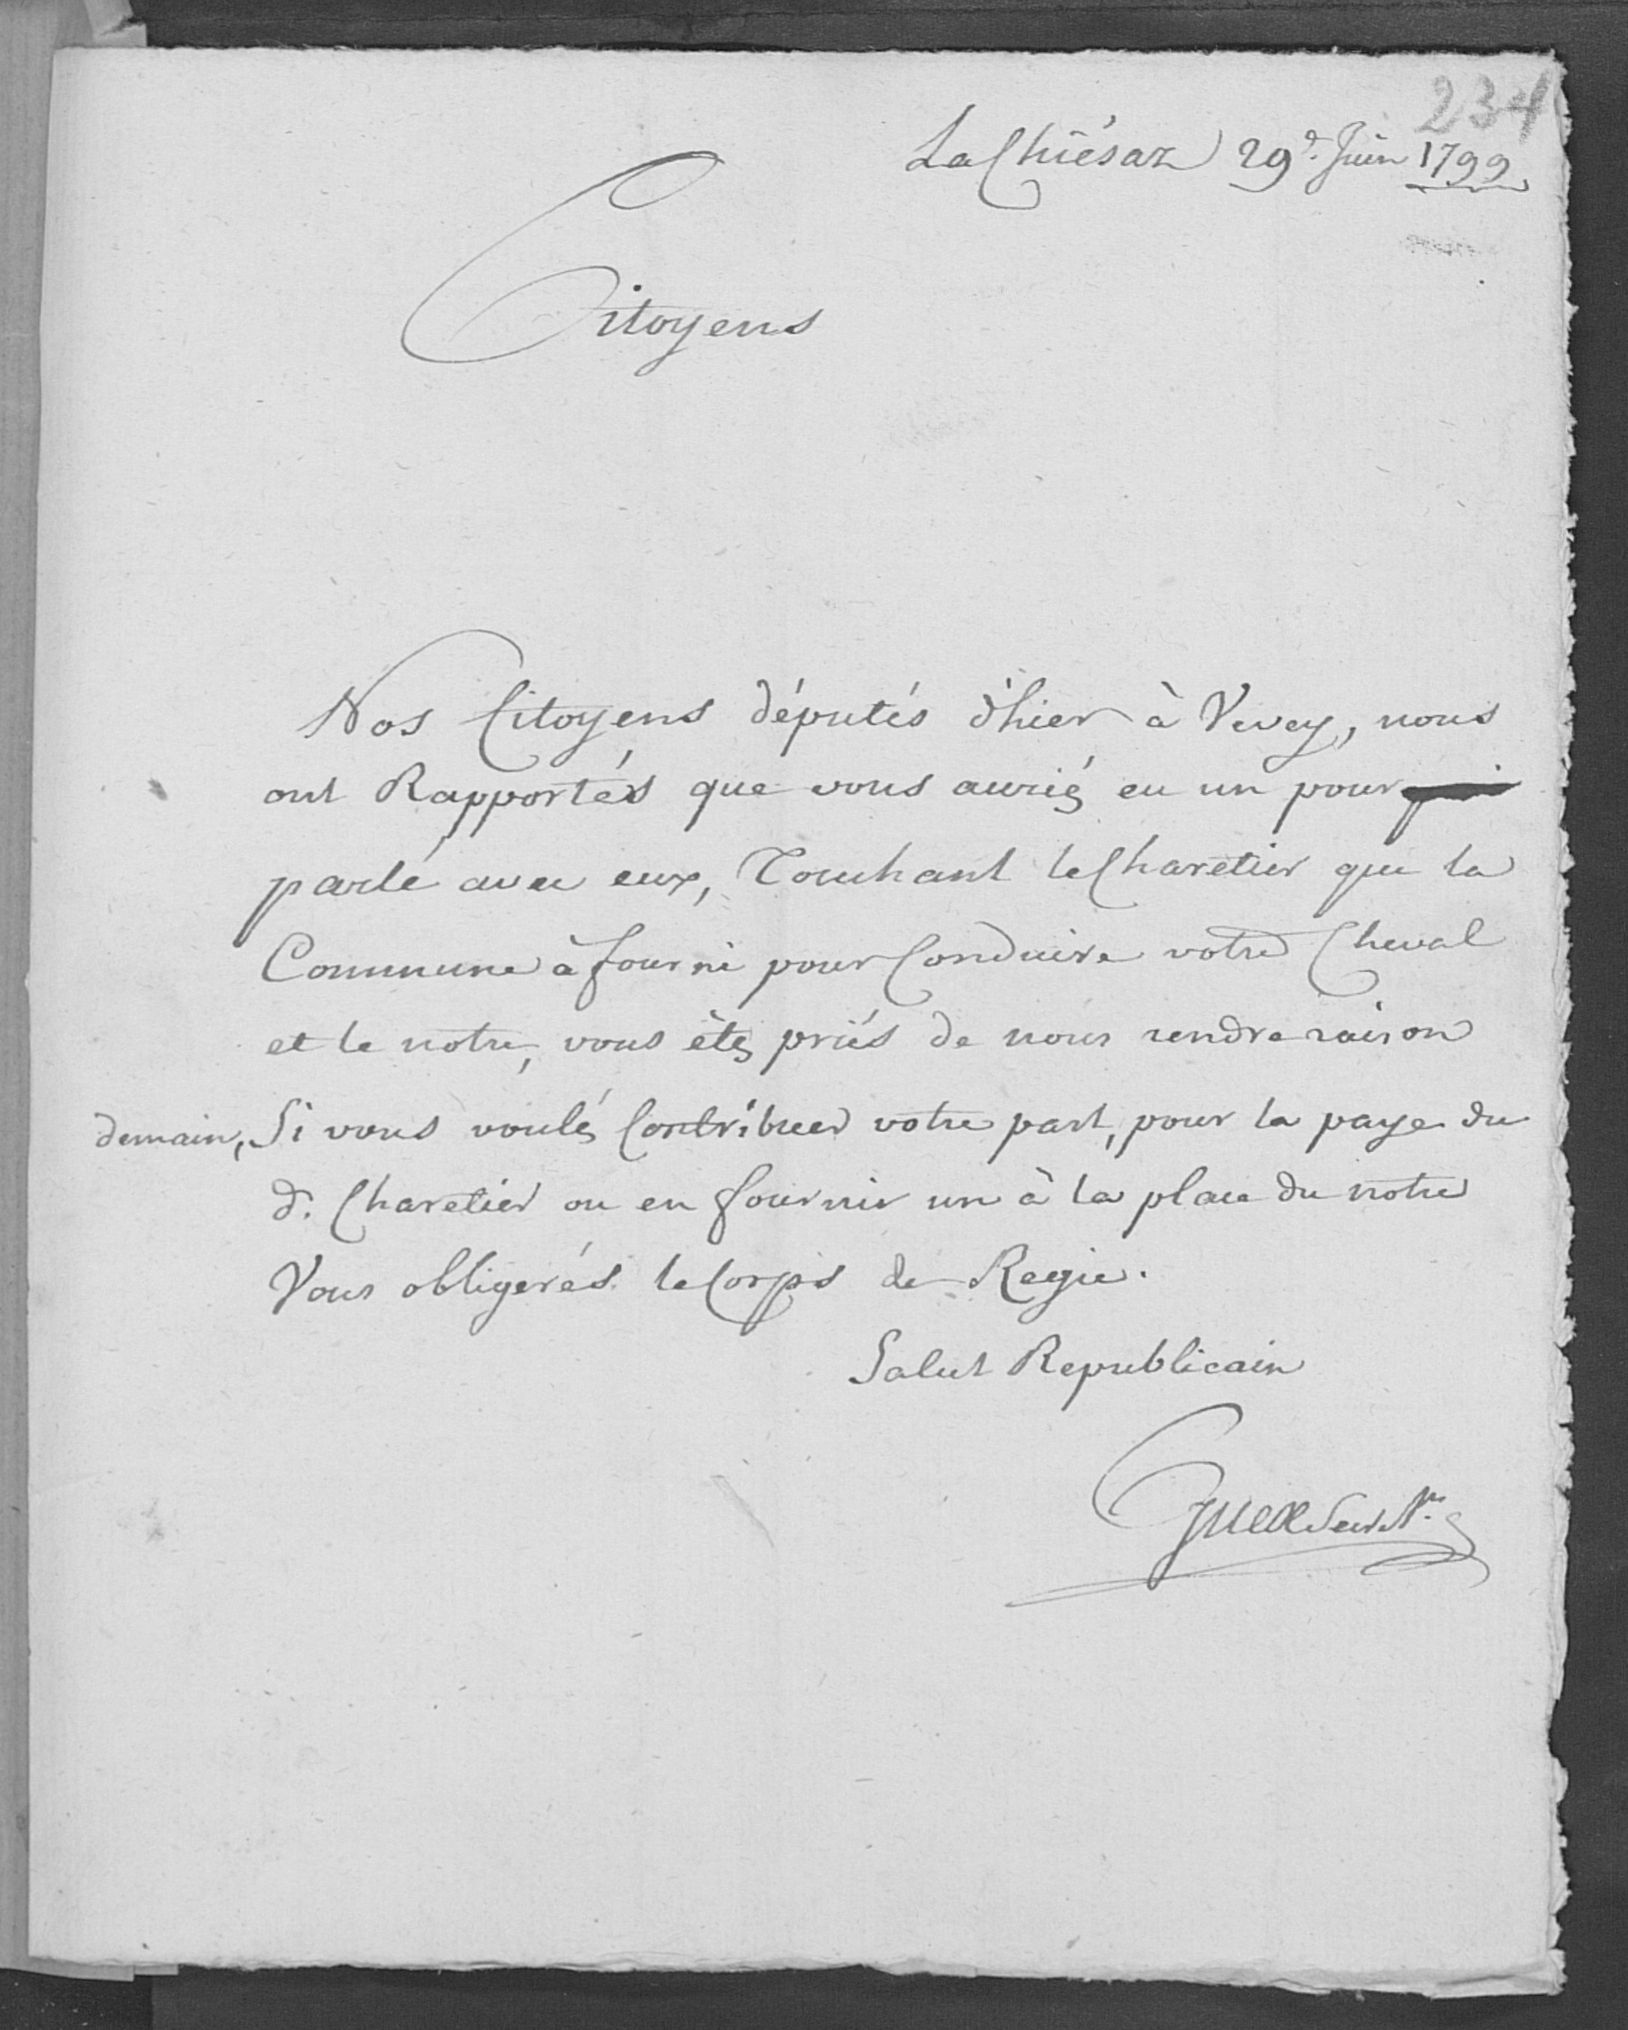 234
La Chiésaz 29.d Juin 1799
Citoyens
Nos Citoyens députés d'hier à Vevey, nous
ont Rapportés que vous auriés eu un pour
parlé avec eux, Touchant le Charetier que la
Commune à fourni pour Conduire votre Cheval
et le notre, vous êtes priés de nous rendre raison
demain, Si vous voulés Contribuer votre part, pour la paye du
d. Charetier ou en fournir un à la place du notre
Vous obligerés le Corps de Regie.
Salut Republicain
Guex